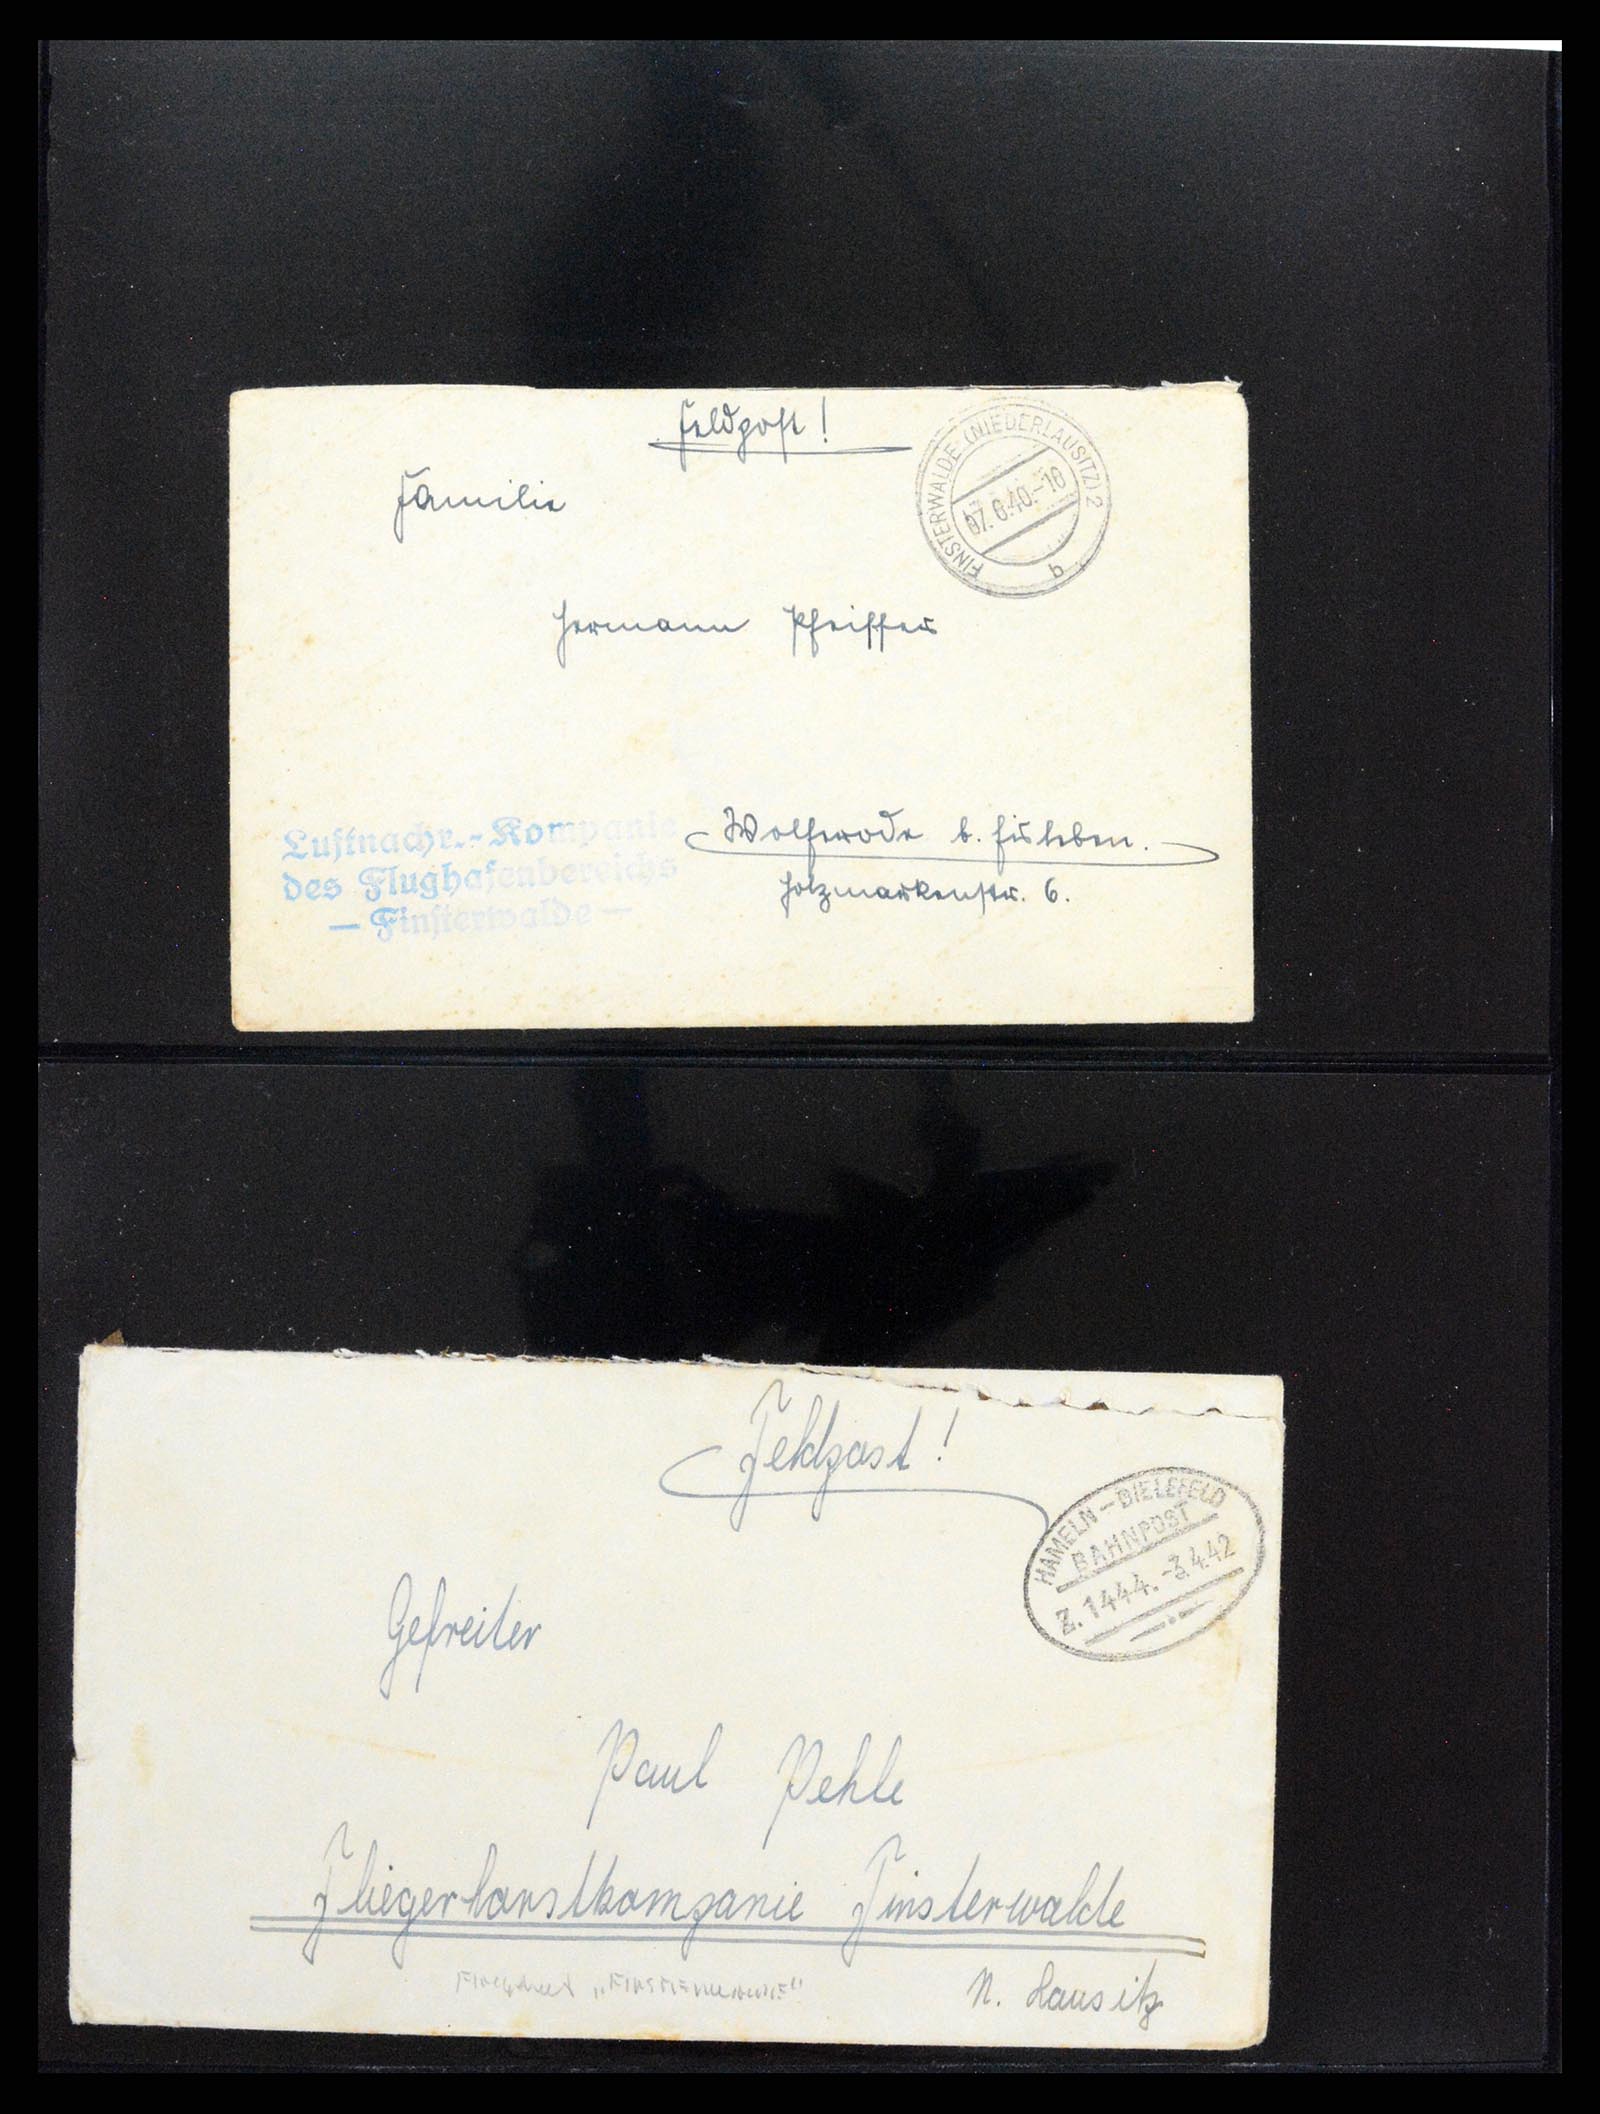 Feldpost!
FINSTERWALDE (NIEDERLAUSITZ) 2
07.6.40.-16
b
Familie
Hermann Pfeiffer
Luftnachr.-Kompanie
des Flughafenbereichs
— Finsterwalde —
Wolferode b. Eisleben.
Holzmarkenstr. 6.
Feldpost!
HAMELN-BIELEFELD
BAHNPOST
Z. 1444. -3.4.42
Gefreiter
Paul Pehle
Fliegerhorstkompanie Finsterwalde
N. Lausitz
"FINSTERWALDE"